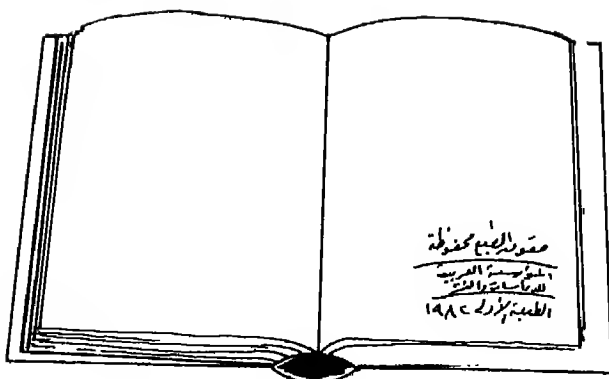 حقوق الطبع محفوظة
المؤسسة العربية
للدراسات والنشر
الطبعة الأولى ١٩٨٢